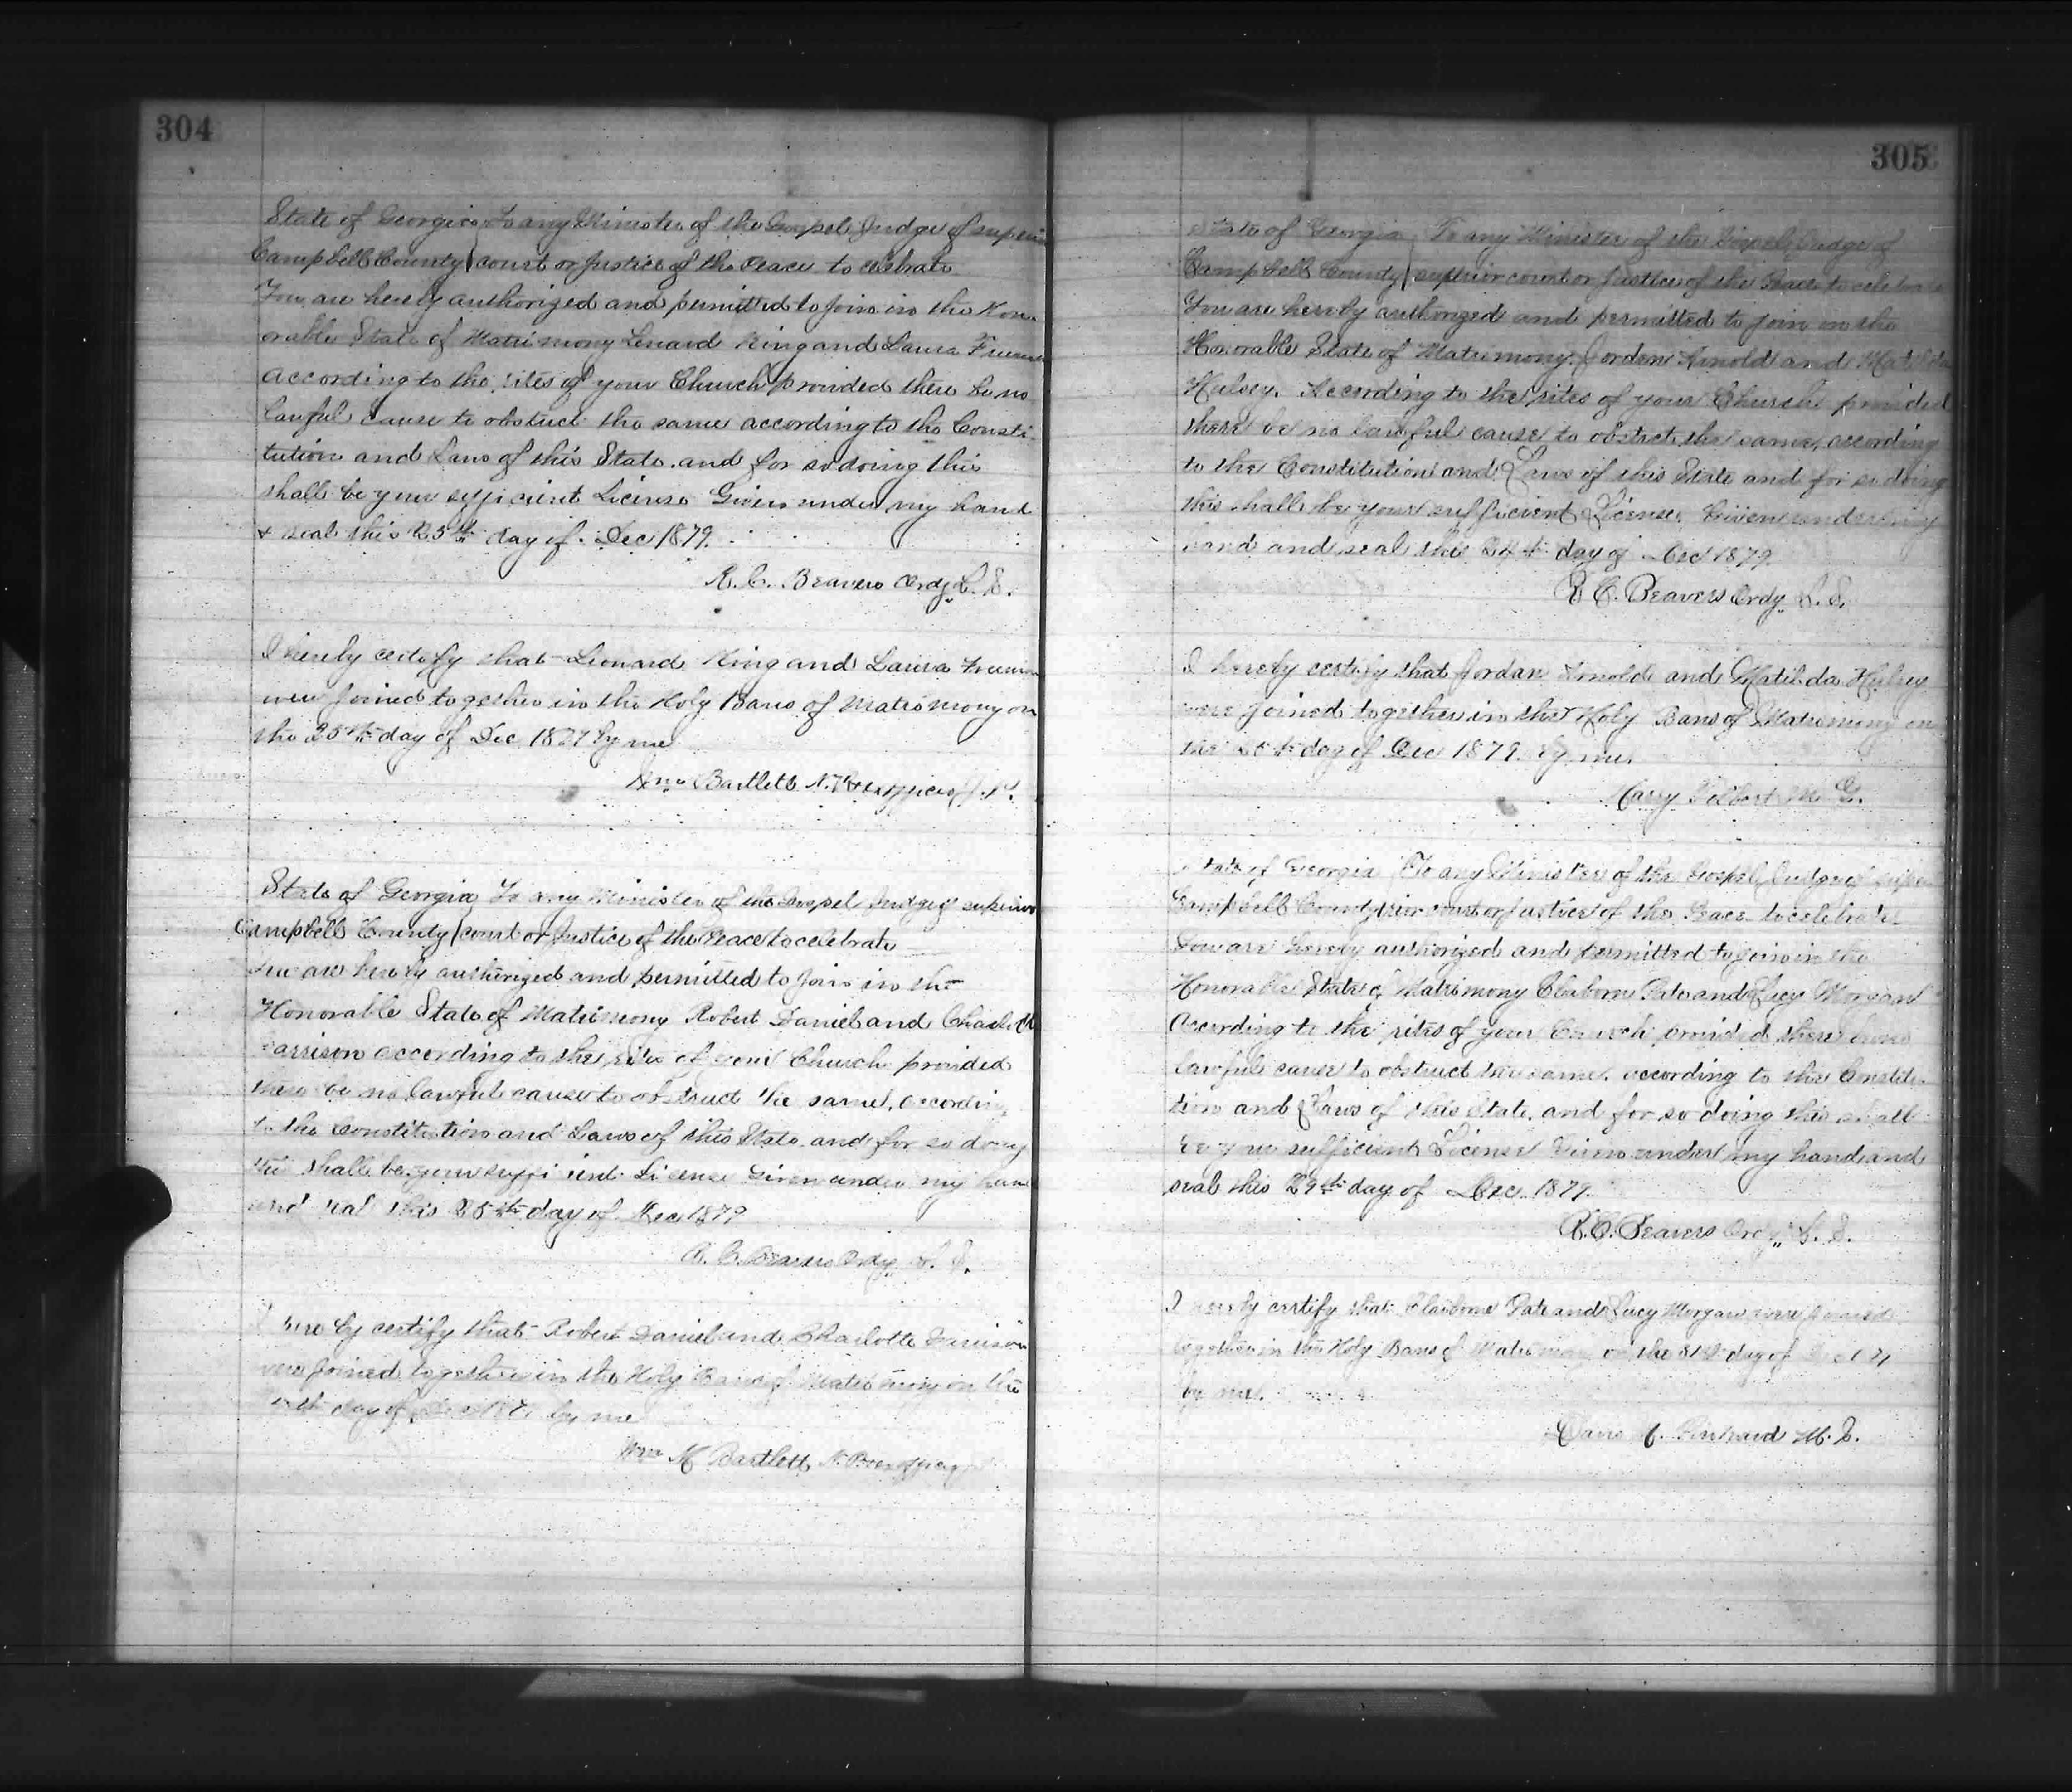 304
State of Georgia To any Minister of the Gospel Judge of superior
Campbell County court or Justice of the Peace to celebrate
You are hereby authorized and permitted to Join in the Hon-
orable State of Matrimony Lenard King and Laura
according to the rites of your Church provided there be no
lawful cause to obstruct the same according to the Consti-
tution and Laws of this State and for so doing this
shall be your sufficient License Given under my hand
& seal this 25th day of Dec 1879.
R. C. Beavers Ordy L. S.
I hereby certify that Leonard King and Laura
were Joined together in the Holy Bans of Matrimony on
the 25th day of Dec by me
Bartlett N.P. & exofficio J. P.
State of Georgia To any Minister of the Gospel Judge of superior
Campbell County court or Justice of the Peace to celebrate
You are hereby authorized and permitted to Join in the
Honorable State of Matrimony Robert Daniel and Charlotte
according to the rites of your Church provided
there be no lawful cause to obstruct the same, according
to the Constitution and Laws of this State and for so doing
this shall be your sufficient License Given under my hand
and seal this 25th day of Dec 1879
R. C. Beavers Ordy L. S.
I hereby certify that Robert Daniel and Charlotte
were Joined together in the Holy Bans of Matrimony on the
day of by me
Wm M Bartlett
305
State of Georgia To any Minister of the Gospel Judge of
Campbell County superior court or Justice of the Peace to celebrate
You are hereby authorized and permitted to Join in the
Honorable State of Matrimony Jorden Arnold and Matilda
Hulsey. According to the rites of your Church provided
there be no lawful cause to obstrct the same, according
to the Constitution and Laws of this State and for so doing
this shall be your sufficient License Given under my
hand and seal this 24th day of Dec 1879
R C. Beavers Ordy L. S.
I hereby certify that Jordan Arnold and Matilda Hulsey
were Joined together in the Holy Bans of Matrimony on
the day of Dec 1879 by me.
M. G.
State of Georgia To any Minister of the Gospel Judge of supe-
Campbell County rior court or Justice of the Peace to celebrate
You are hereby authorized and permitted to join in the
Honorable State of Matrimony Claiborn Pate and Lucy Morgan
According to the rites of your Church provided there be no
lawful cause to obstruct the same, according to the Constitu-
tion and Laws of this State, and for so doing this shall
be your sufficient License Given under my hand and
seal this 29th day of Dec 1879.
R. C. Beavers Ordy L. S.
I hereby certify that Claiborne Pate and Lucy Morgan were Joined
together in the Holy Bans of Matrimony on the 31st day of
by me.